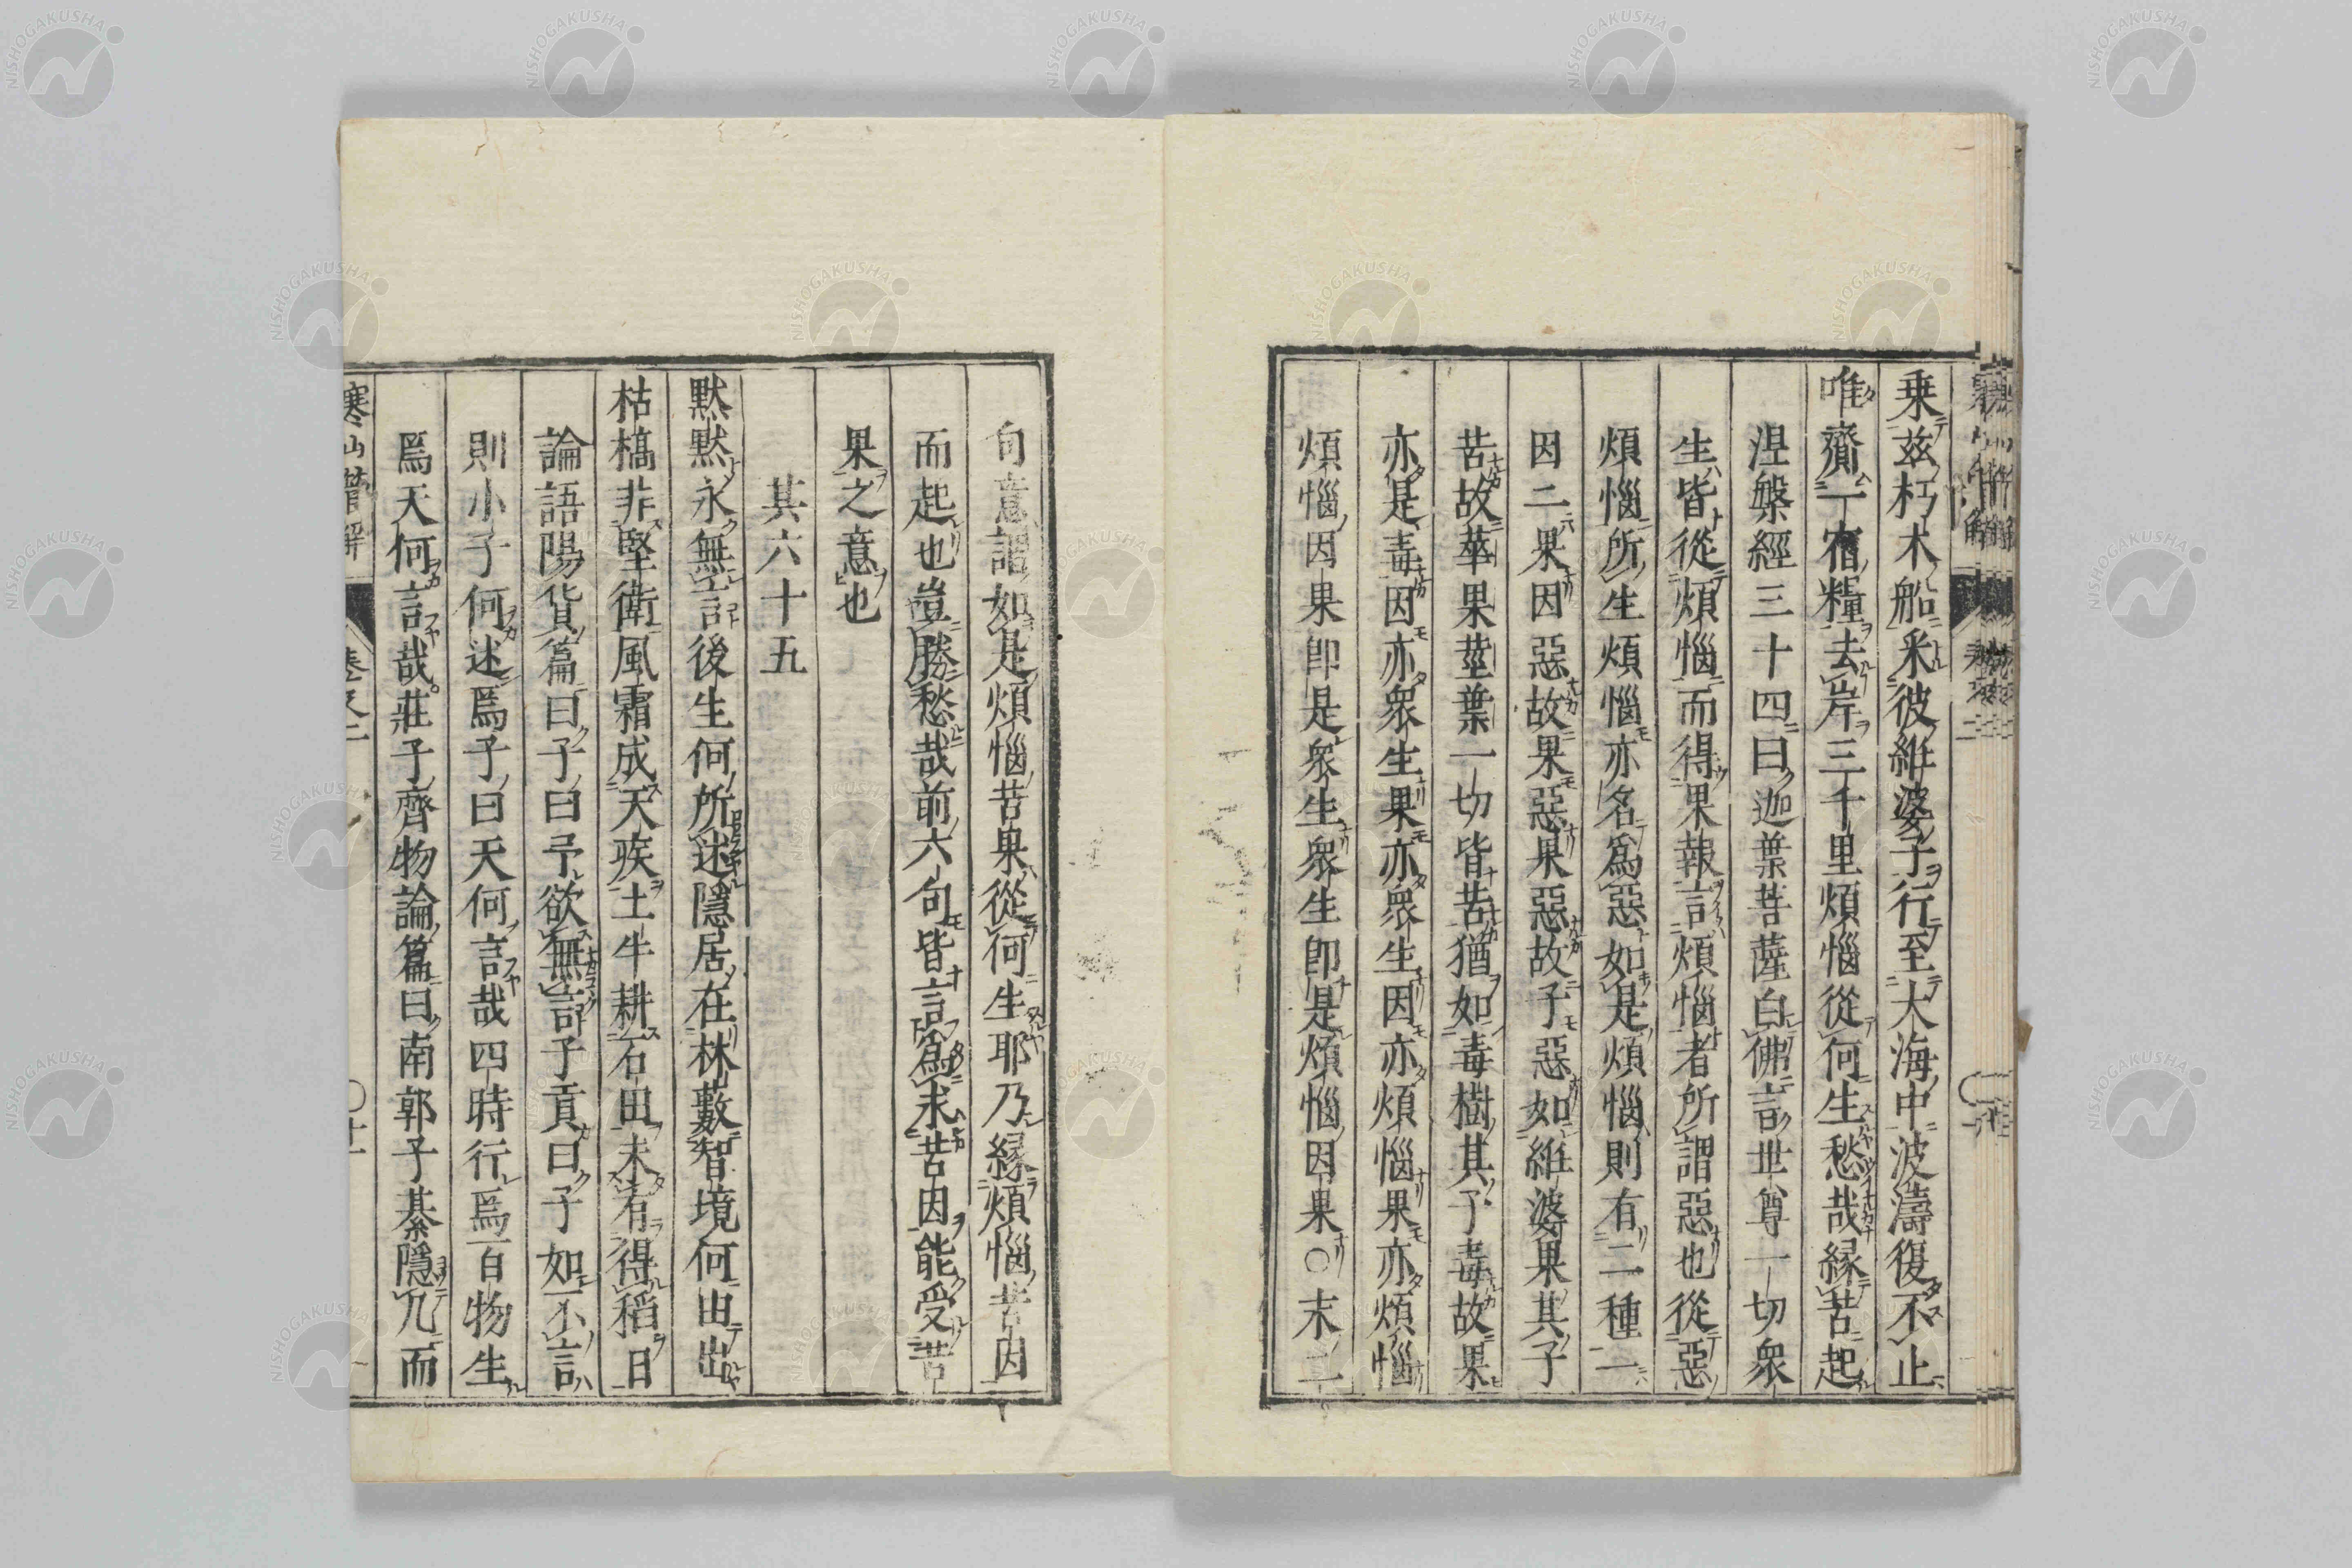 乗茲朽木船采彼紝婆子行至大海中波濤復不止
唯齎一宿糧去岸三千里煩惱從何生愁哉縁苦起
涅槃經三十四曰迦葉菩薩白佛言世尊一切衆
生皆從煩惱而得果報言煩惱者所謂惡也從惡
煩惱所生煩惱亦名爲惡如是煩惱則有二種一
因二果因惡故果惡果惡故子惡如紝婆果其子
苦故華果莖葉一切皆苦猶如毒樹其子毒故果
亦是毒因亦衆生果亦衆生因亦煩惱果亦煩惱
煩惱因果卽是衆生衆生卽是煩惱因果〇末二
句意謂如是煩惱苦果從何生耶乃縁煩惱苦因
而起也豈勝愁哉前六句皆言爲未苦因能受苦
果之意也
其六十五
黙黙永無言後生何所述隱居在林藪智境何由出
枯槁非堅衛風霜成夭疾土牛耕石田未有得稻日
論語陽貨篇曰子曰予欲無言子貢曰子如不言
則小子何述焉子曰天何言哉四時行焉百物生
焉天何言哉莊子齊物論篇曰南郭子綦隱几而
寒山詩闡解 卷之二 〇十一
NISHOGAKUSHA